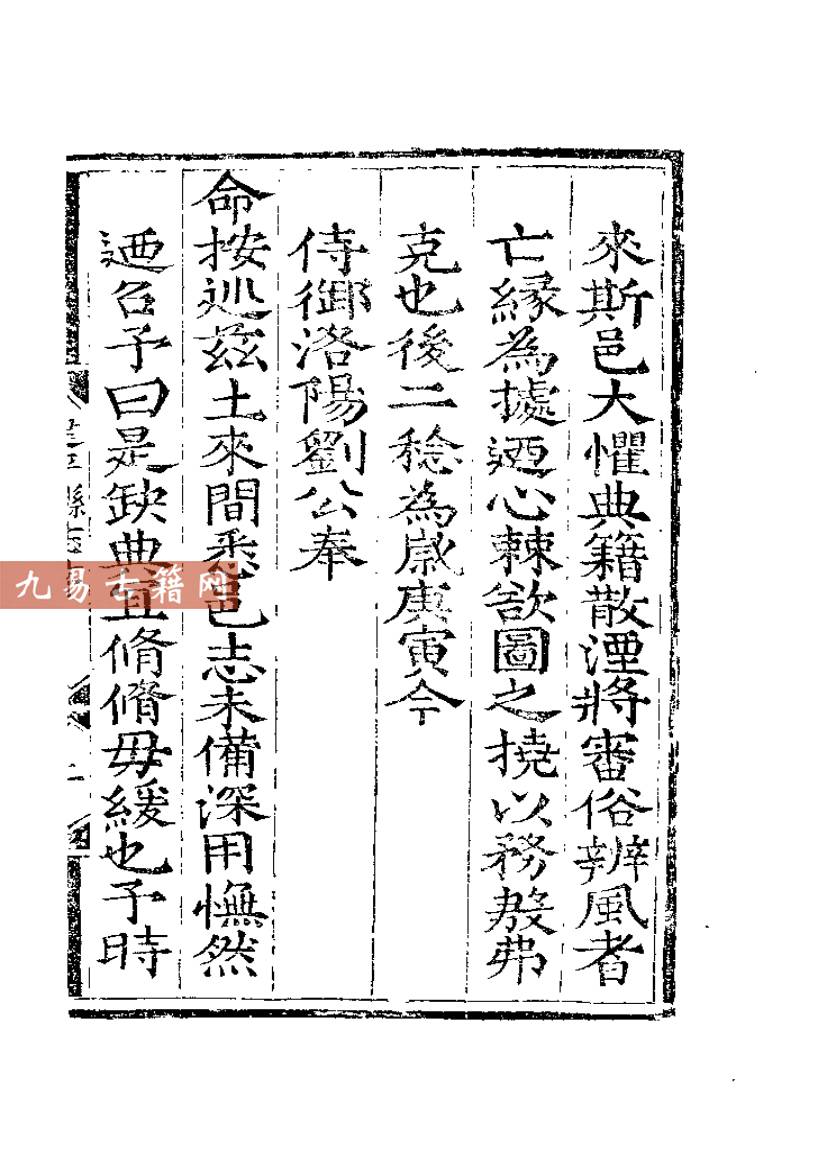 來斯邑大懼典籍散湮將審俗辨風者
亡緣為據迺心棘欲圖之撓以務敖弗
克也後二稔為歲庚寅今
侍御洛陽劉公奉
命按巡茲土來間悉邑志未備深用憮然
迺召予曰是缺典宜脩脩毋緩也予時
縣志
二
九易古籍网